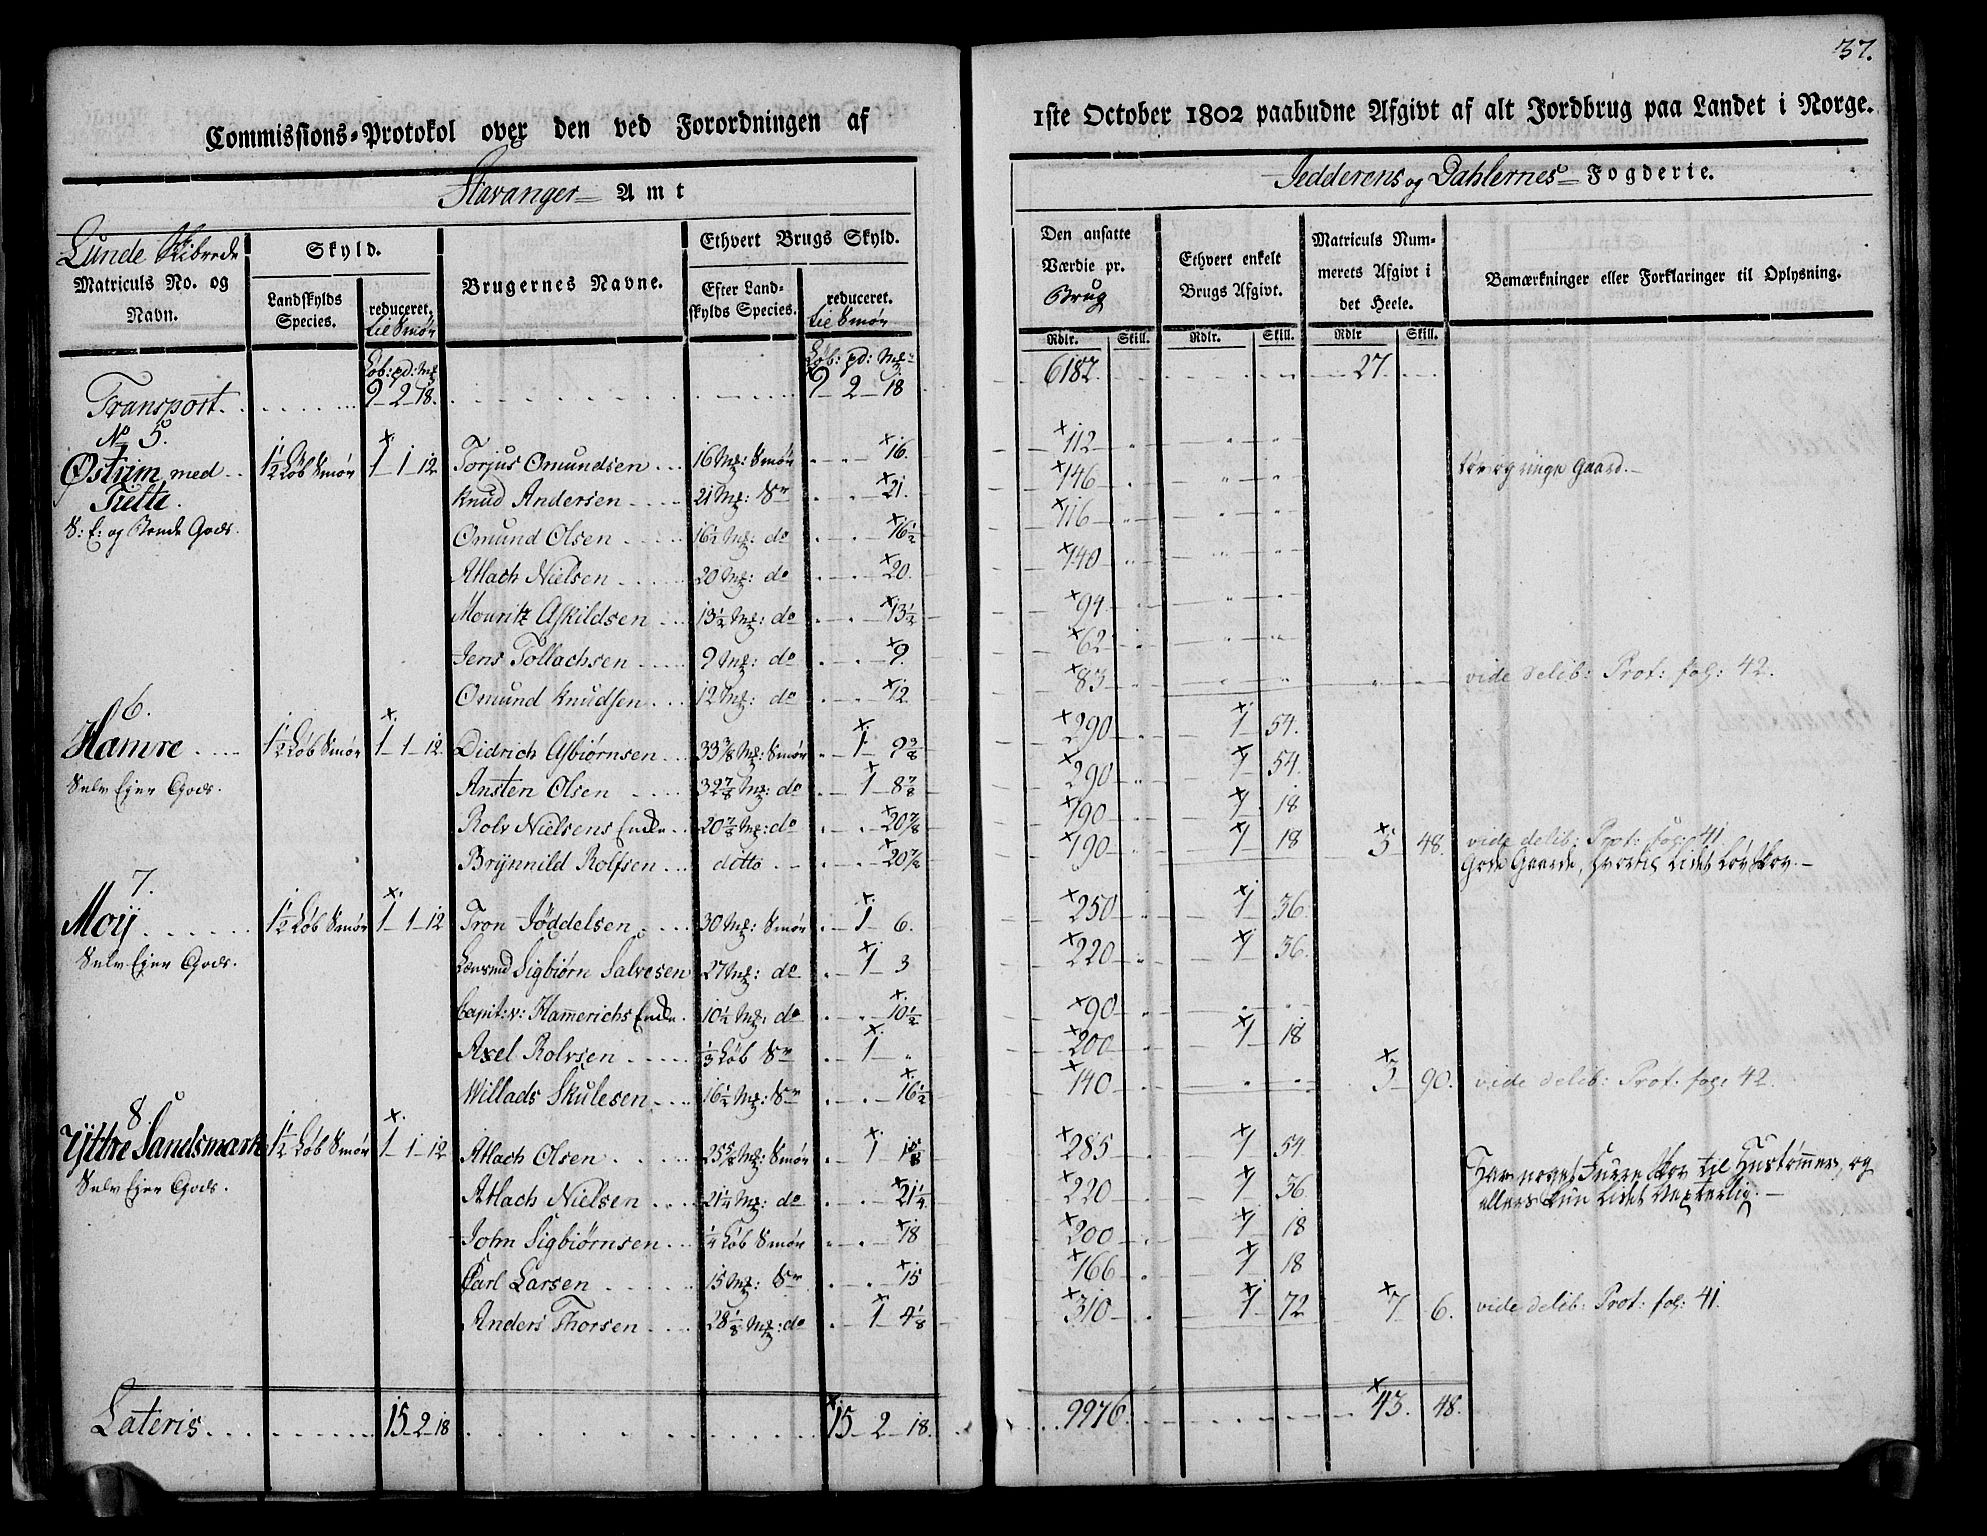 37.
Commissions=Protokol over den ved Forordningen af 1ste October 1802 paabudne Afgivt af alt Jordbrug paa Landet i Norge.
Stavanger Amt Jedderens og Dahlernes Fogderie.
Lunde Skibrede
Matriculs No. og Navn.
Skyld.
Landskylds Species.
reduceret. til Smør
Brugernes Navne.
Ethvert Brugs Skyld.
Efter Landskylds Species.
reduceret. til Smør
Den ansatte Værdie pr. Brug
Ethvert enkelt Brugs Afgivt.
Matriculs Nummerets Afgivt i det Heele.
Bemærkninger eller Forklaringer til Oplysning.
Rdlr. Skill. Rdlr. Skill. Rdlr Skill.
Løb: pd: Mk Løb: pd: Mk
Transport. 9 2 18. 9 2 18 6182. 27.
No 5.
Østrim med 1½ Løb Smør 1 1 12 Torjus Omundsen 16 Mk: Smør 16. 112
Tutte. Knud Andersen 21 Mk: Sr 21. 146
S: E: og Bonde Gods. Omund Olsen 16½ Mk: do 16½ 116
Atlach Nielsen 20 Mk: do 20. 140
Mouritz Askildsen 13½ Mk: do 13½ 94
Jens Tollachsen 9 Mk: do 9. 62
Osmund Knudsen 12 Mk: do 12 83 vide delib: Prot: fol: 42.
6.
Hamre 1½ Løb Smør 1 1 12 Didrich Asbiørnsen 33⅜ Mk: Smør 1 9⅜ 290 1 54.
Selv Ejer Gods. Ansten Olsen 32⅞ Mk: do 1 8⅞ 290 1 54.
Rolv Nielsens Enke 20⅞ Mk: do 20⅞ 190 1 18
Brynnild Rolfsen ditto 20⅞ 190 1 18 5 48. vide delib: Prot: fol: 41
Gode Gaarde, hvortil Lidet Løvskov.
7.
Moij 1½ Løb Smør 1 1 12 Tron Jøddelsen 30 Mk: Smør 1 6. 250 1 36.
Selv Ejer Gods. Lensmd Sigbiørn Salvesen 27 Mk: do 1 3 220 1 36.
Capit: v: Hamerichs Enke 10½ Mk: do 10½ 90
Axel Rolvsen ⅓ Løb Sr 1 200 1 18
Willads Skulesen 16½ Mk: Sr 16½ 140 3 90. vide delib: Prot: fol: 42.
8.
Yttre Sandsmark 1½ Løb Smør 1 1 12 Atlach Olsen 25⅝ Mk: Smør 1 1⅝ 285 1 54.
Selv Ejer Gods. Atlach Nielsen 21¼ Mk: do 21¼ 220 1 36.
Har noget Furre Skov til Hustømmer, og
ellers kun Lidet
John Sigbiørnsen ¼ Løb Smør 18 200 1 18
Carl Larsen 15 Mk: Sr 15 166 1 18
Anders Thorsen 28⅛ Mk: do 1 4⅛ 310 1 72 7 6. vide delib: Prot: fol: 41.
Lateris 15 2 18 15 2 18. 9976 43. 48.